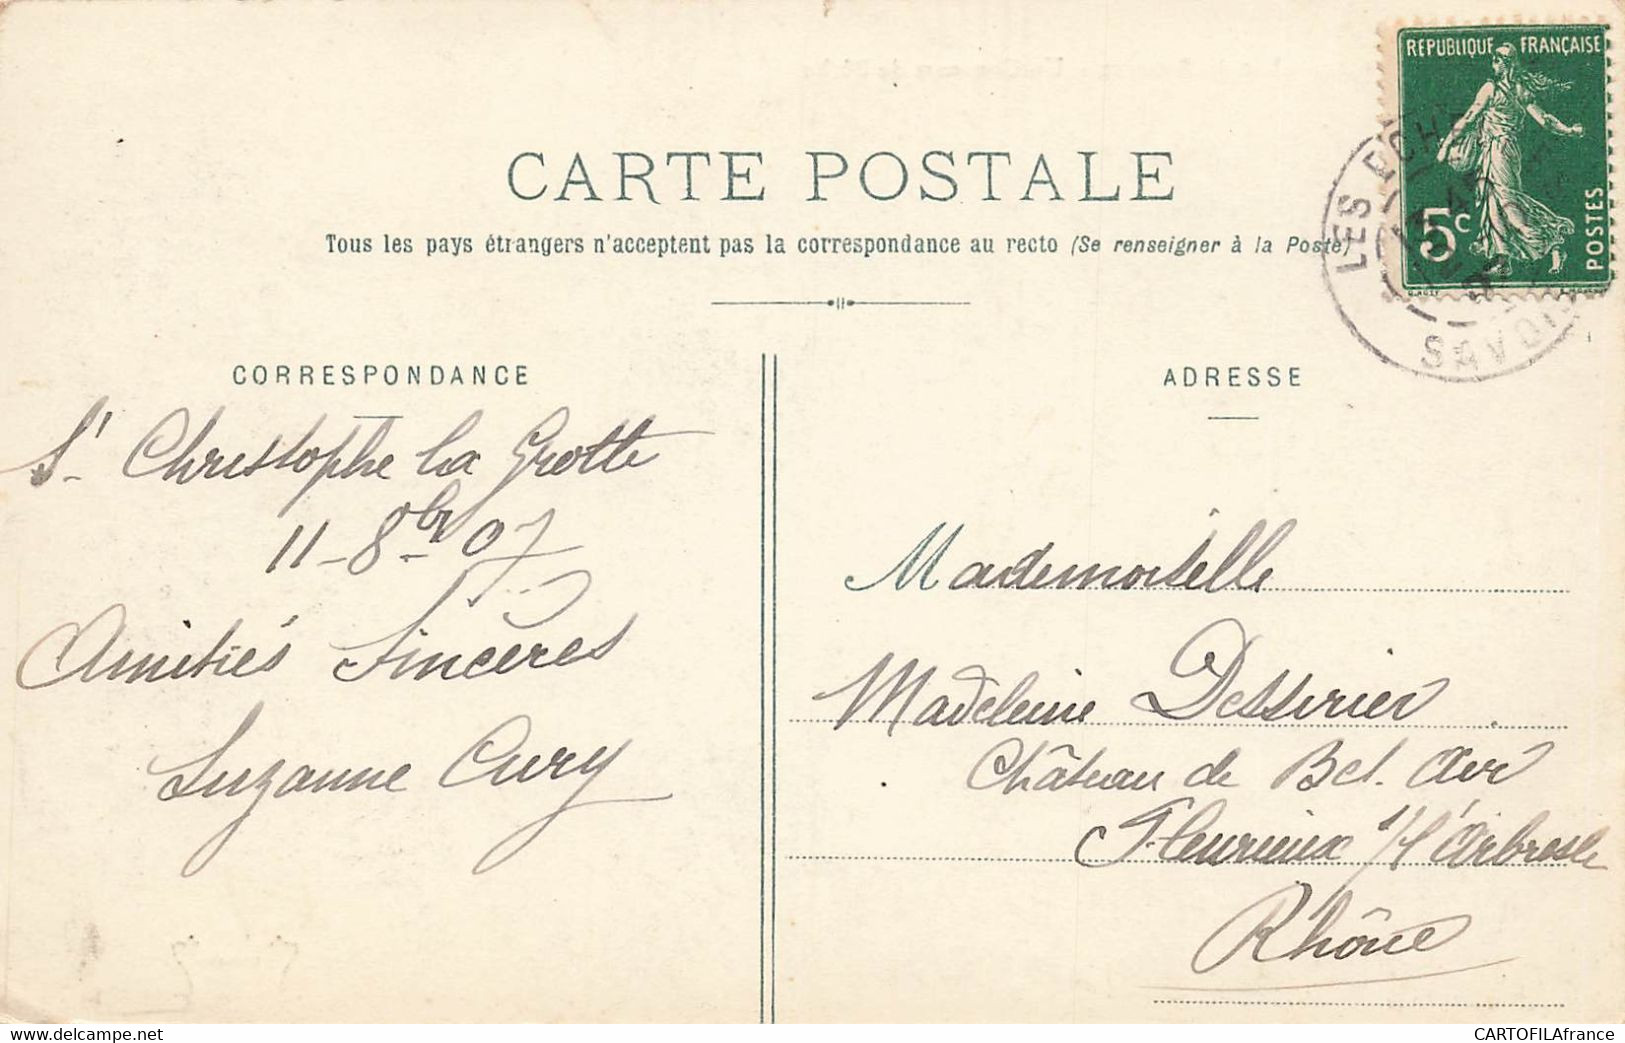 RÉPUBLIQUE FRANÇAISE
5c
POSTES
LES ECHE
SAVOIE
CARTE POSTALE
Tous les pays étrangers n'acceptent pas la correspondance au recto (Se renseigner à la Poste)
CORRESPONDANCE
St Christophe la Grotte
11-8bre 07
Amitiés Sincères
Suzanne Cury
ADRESSE
Mademoiselle
Madeleine Desserier
Château de Bel. Air
Fleurieux s/ l'Arbresle
Rhône
www.delcampe.net
CARTOFILAfrance